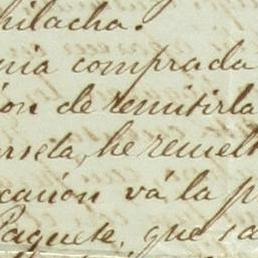 hilacha.
nia comprada
ion de remitirla
rsela, he remet
cación vá la p
Paquete, que sa